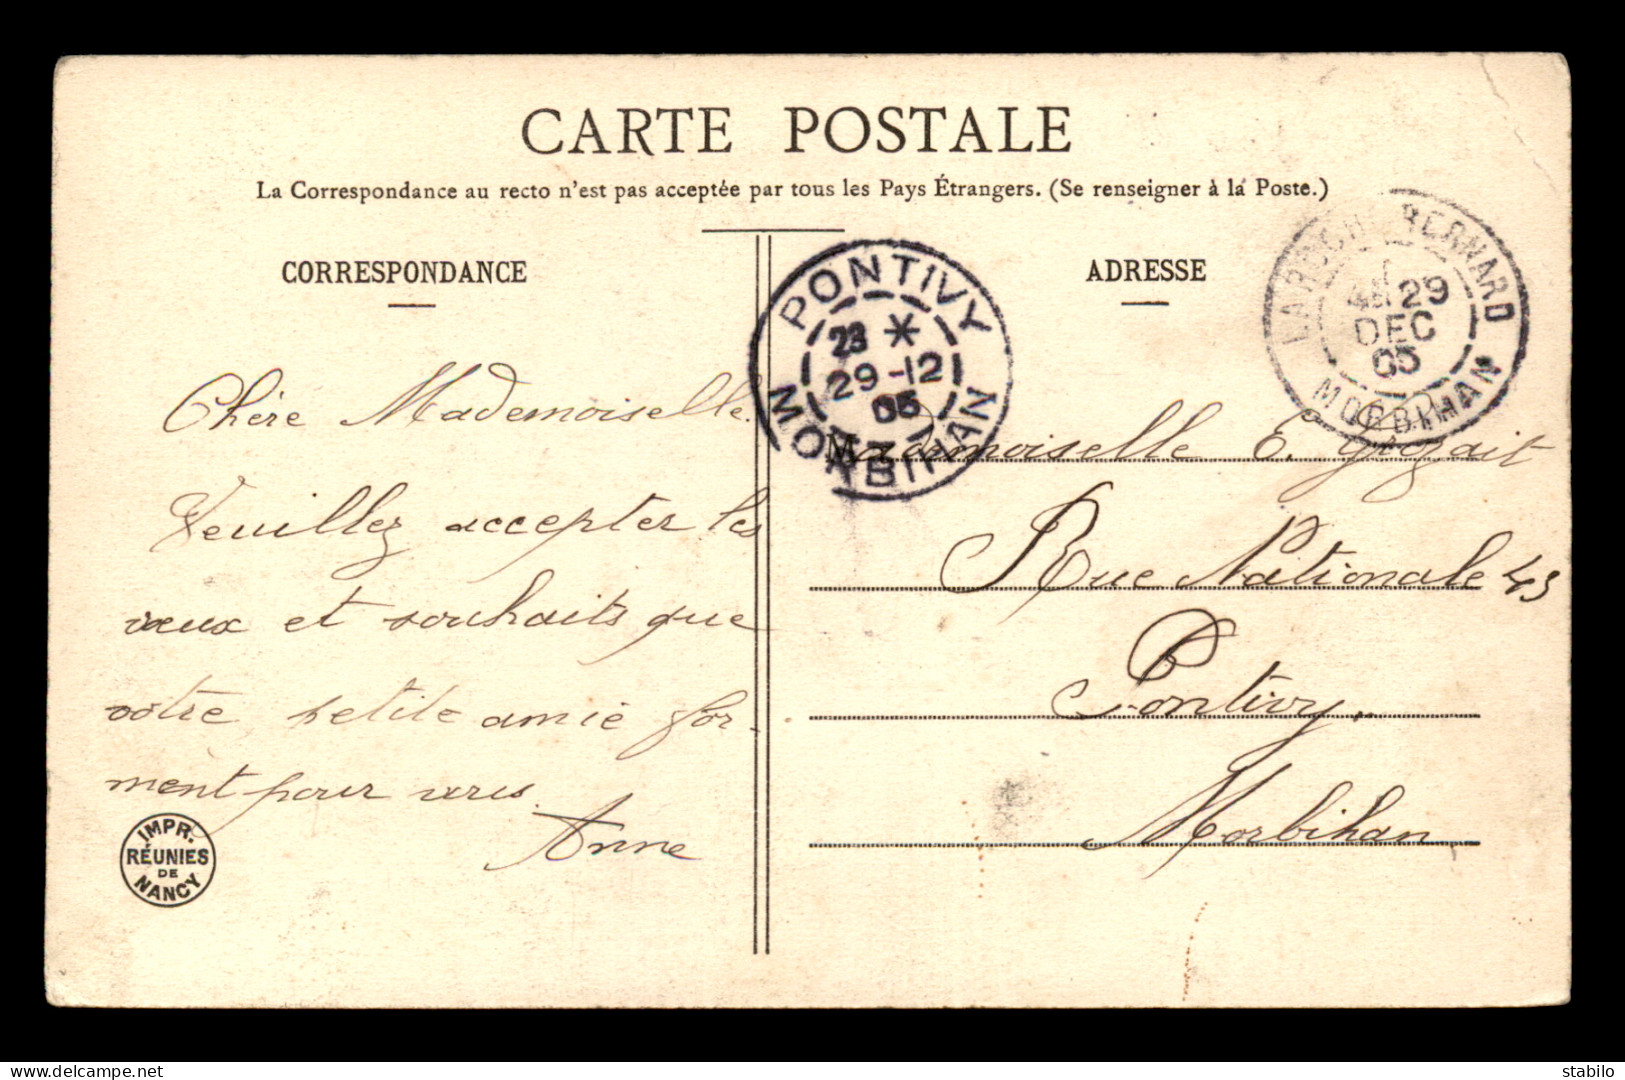 CARTE POSTALE
La Correspondance au recto n'est pas acceptée par tous les Pays Étrangers. (Se renseigner à la Poste.)
CORRESPONDANCE
Chère Mademoiselle.
Veuillez accepter les
vœux et souhaits que
votre petite amie for-
ment pour
Anne
IMPR.
RÉUNIES
DE
NANCY
PONTIVY
29-12
05
MORBIHAN
ADRESSE
LA ROCHE BERNARD
29
DEC
05
MORBIHAN
Mademoiselle E.
Rue Nationale
Pontivy.
Morbihan
stabilo